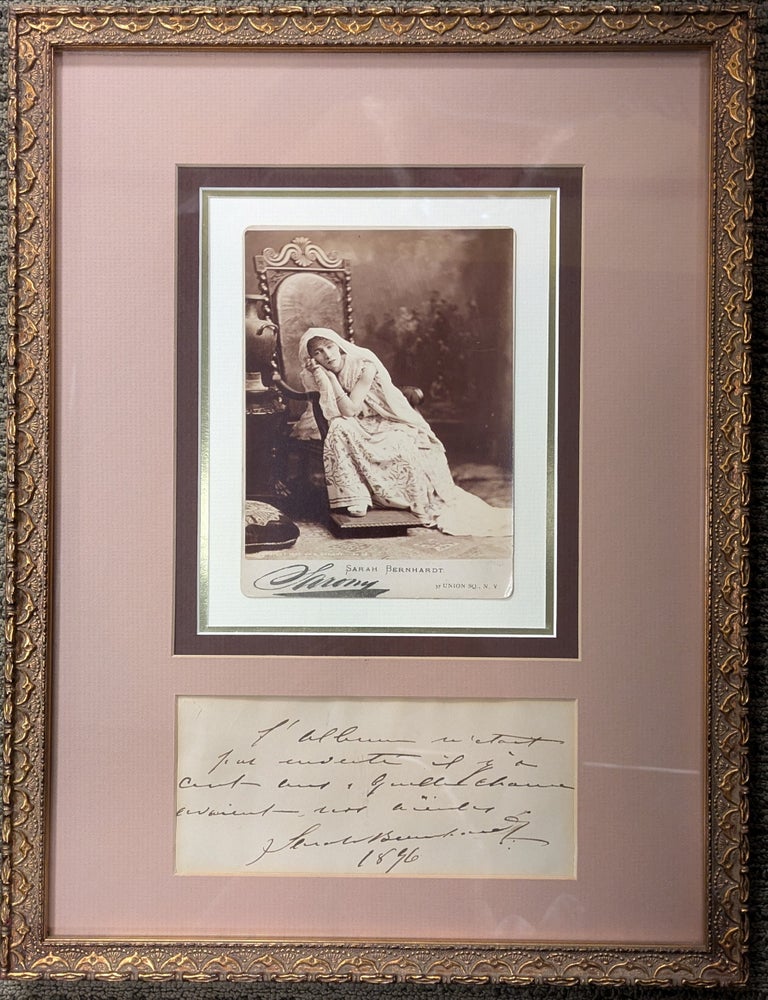 SARAH BERNHARDT.
Sarony
37 UNION SQ., N. Y.
L'album n'étant
pas inventé il y a
cent ans, quelle chance
avaient nos aïeules
Sarah Bernhardt
1896